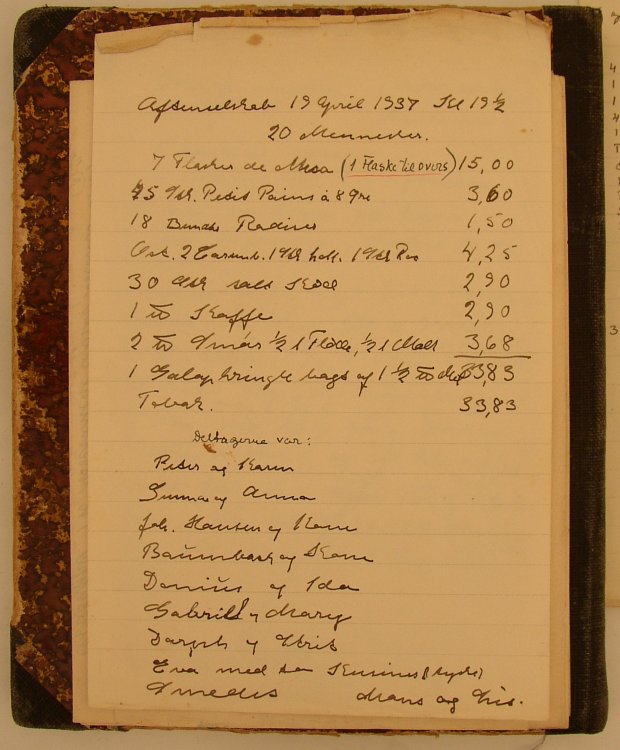 Aftenselskab 19 April 1937 Kl 19½
20 Mennesker.
7 Flasker de Mesa (1 Flaske tilovers) 15,00
45 Stk. Petit Pains à 8 Øre 3,60
18 Bundter Radiser 1,50
Ost. 2 1 Stk holl. 1 Stk 4,25
30 Stk salt 2,90
1 ℔ Kaffe 2,90
2 ℔ Smør ½ l Fløde, ½ l Mælk 3,68
1 kringle bagt af 1½ ℔ 33,83
Tobak. 33,83
Deltagerne var:
Peter og Karen
Gunnar og Anna
Joh. Hansen og Kone
Baumbach og Kone
Danius og Ida
Gabriel og Mary
og
Eva med to Kusiner (tyske)
Smedes Mans og Lis.
7
4
1
1
4
3